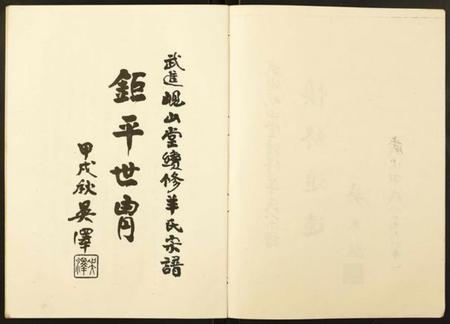 武進峴山堂續修羊氏宗譜
鉅平世冑
甲戌秋吳澤
吳澤